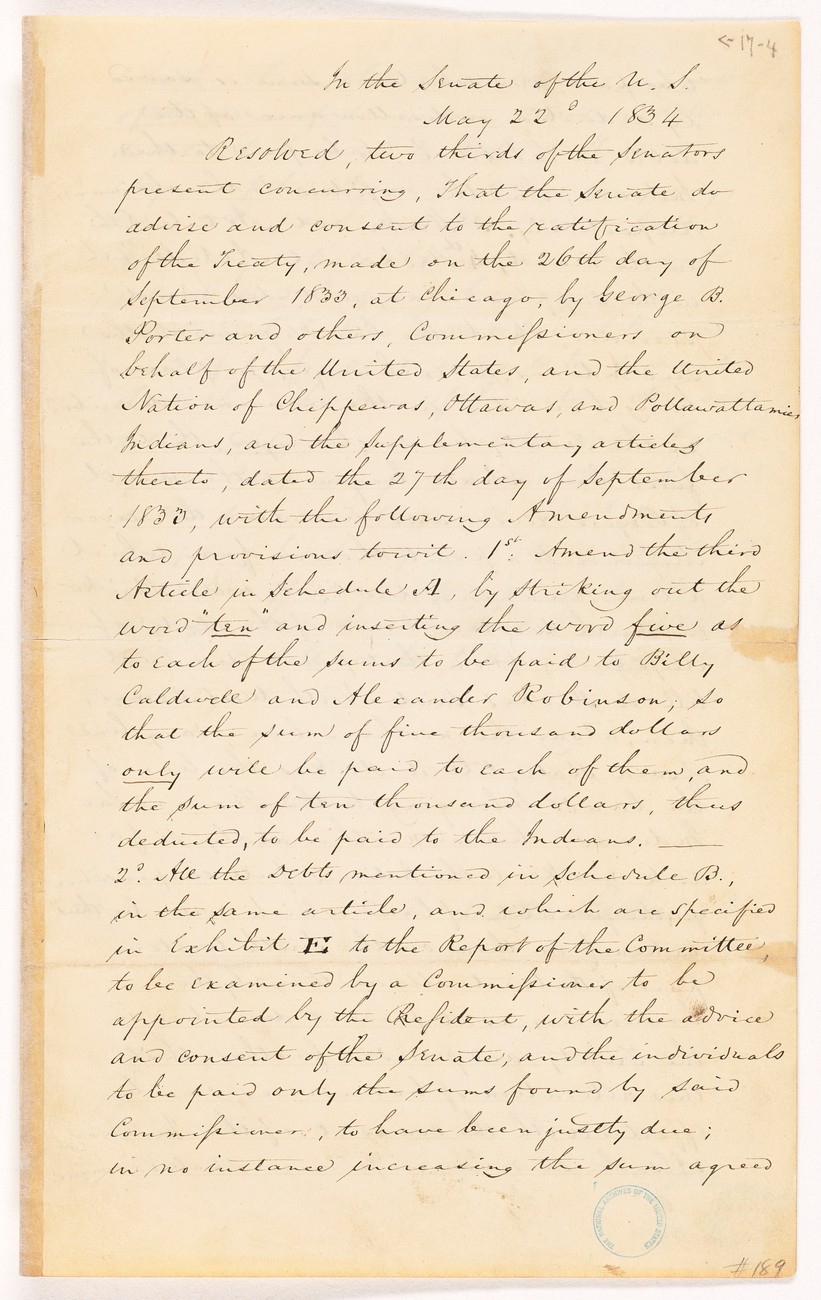 <-17-4
In the Senate of the U. S.
May 22d 1834
Resolved, two thirds of the Senators
present concurring, That the Senate do
advise and consent to the ratification
of the Treaty, made on the 26th day of
September 1833, at Chicago, by George B.
Porter and others, Commissioners on
behalf of the United States, and the United
Nation of Chippewas, Ottawas, and Pottawattamies
Indians, and the supplementary articles
thereto, dated the 27th day of September
1833, with the following Amendments
and provisions towit. 1st: Amend the third
Article in Schedule A, by striking out the
word "ten" and inserting the word five as
to each of the sums to be paid to Billy
Caldwell and Alexander Robinson; so
that the sum of five thousand dollars
only will be paid to each of them, and
the sum of ten thousand dollars, thus
deducted, to be paid to the Indians. —
2d. All the Debts mentioned in Schedule B.,
in the same article, and which are specified
in Exhibit E to the Report of the Committee,
to be examined by a Commissioner to be
appointed by the President, with the advice
and consent of the Senate, and the individuals
to be paid only the sums found by said
Commissioner, to have been justly due;
in no instance increasing the sum agreed
THE NATIONAL ARCHIVES OF THE UNITED STATES
#189